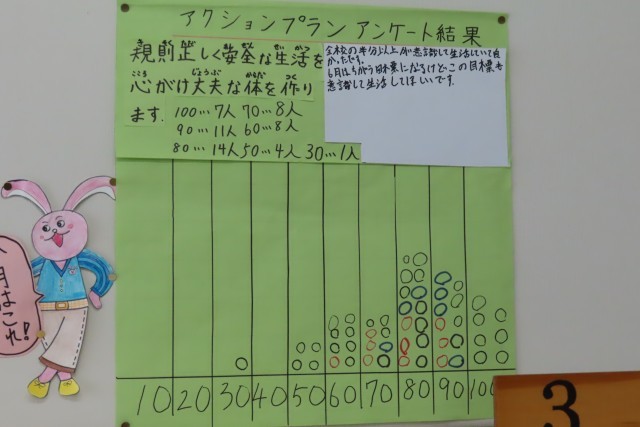 アクションプラン アンケート結果
規則正しく安全な生活を
心がけ丈夫な体を作り
ます.
100…7人 70…8人
90…11人 60…8人
80…14人 50…4人 30…1人
全校の半分以上が意識して生活していて良
かったです。
6月はちがう目標になるけど、この目標も
意識して生活してほしいです。
月はこれ!
10 20 30 40 50 60 70 80 90 100
3